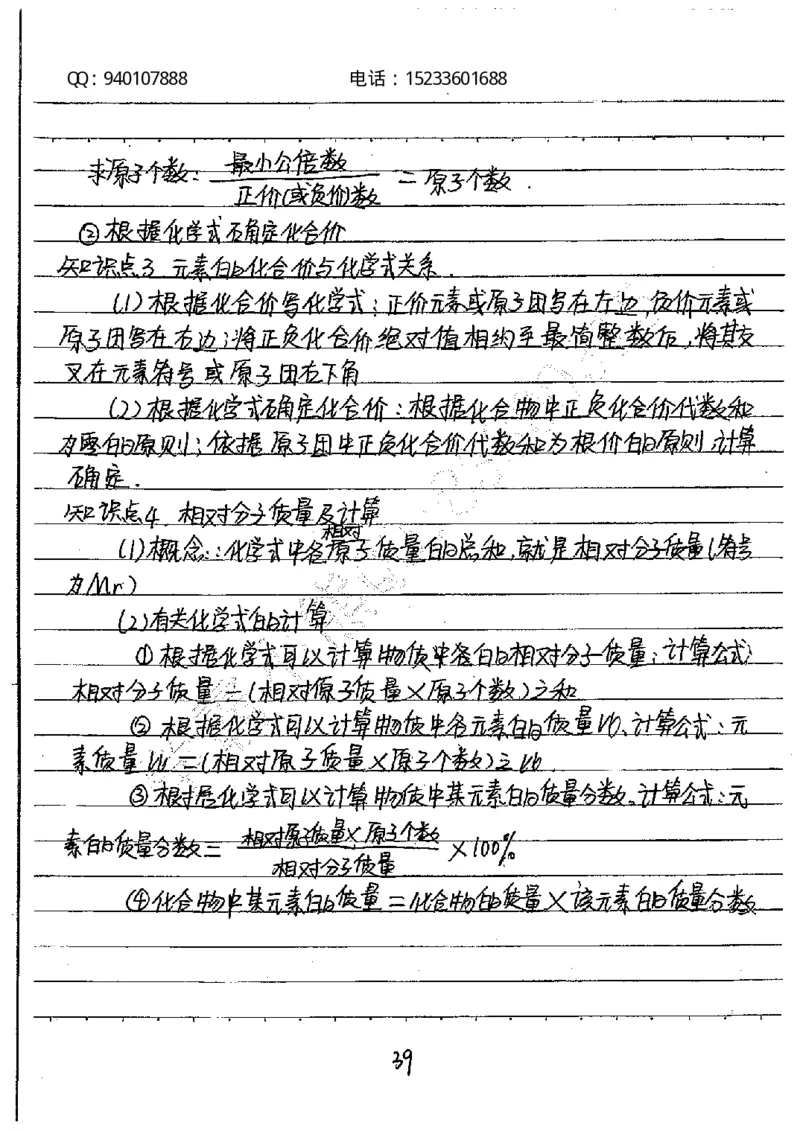 QQ：940107888 电话：15233601688
求原子个数：最小公倍数/正价(或负价)数 = 原子个数.
②根据化学式确定化合价
知识点3 元素的化合价与化学式关系.
(1)根据化合价写化学式：正价元素或原子团写在左边,负价元素或
原子团写在右边;将正负化合价绝对值相约至最简整数后,将其交
叉在元素符号或原子团右下角
(2)根据化学式确定化合价：根据化合物中正负化合价代数和
为零的原则;依据原子团中正负化合价代数和为根价的原则,计算
确定.
知识点4 相对分子质量及计算
(1)概念：化学式中各原子相对质量的总和,就是相对分子质量(符号
为Mr)
(2)有关化学式的计算
①根据化学式可以计算物质中各的相对分子质量;计算公式:
相对分子质量=(相对原子质量×原子个数)之和
②根据化学式可以计算物质中各元素的质量比.计算公式：元
素质量比=(相对原子质量×原子个数)之比.
③根据化学式可以计算物质中某元素的质量分数.计算公式:元
素的质量分数=相对原子质量×原子个数/相对分子质量 ×100%
④化合物中某元素的质量=化合物的质量×该元素的质量分数
39